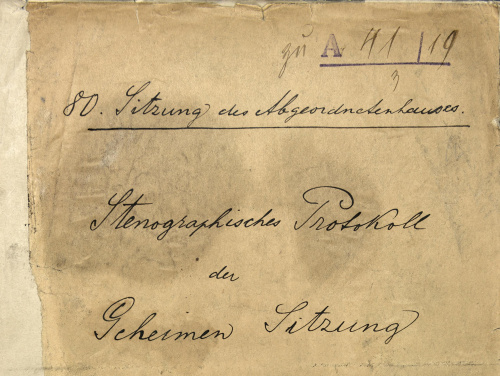 zu A 41/19
3
80. Sitzung des Abgeordnetenhauses.
Stenographisches Protokoll
der
Geheimen Sitzung